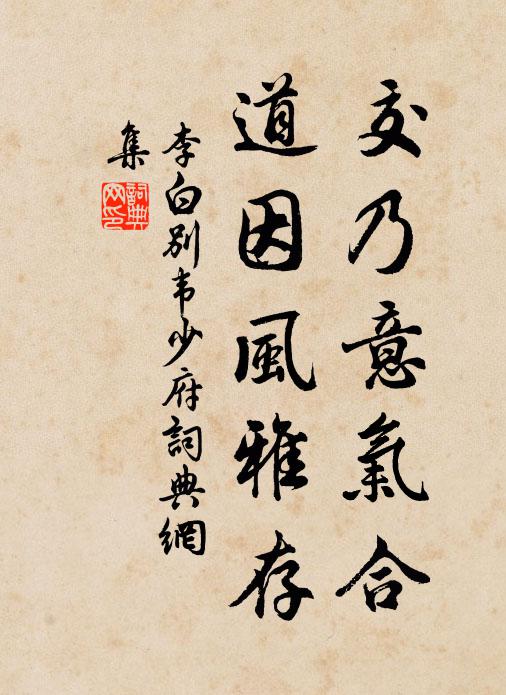 交乃意氣合
道因風雅存
李白别韦少府詞典網
集
詞典
网印